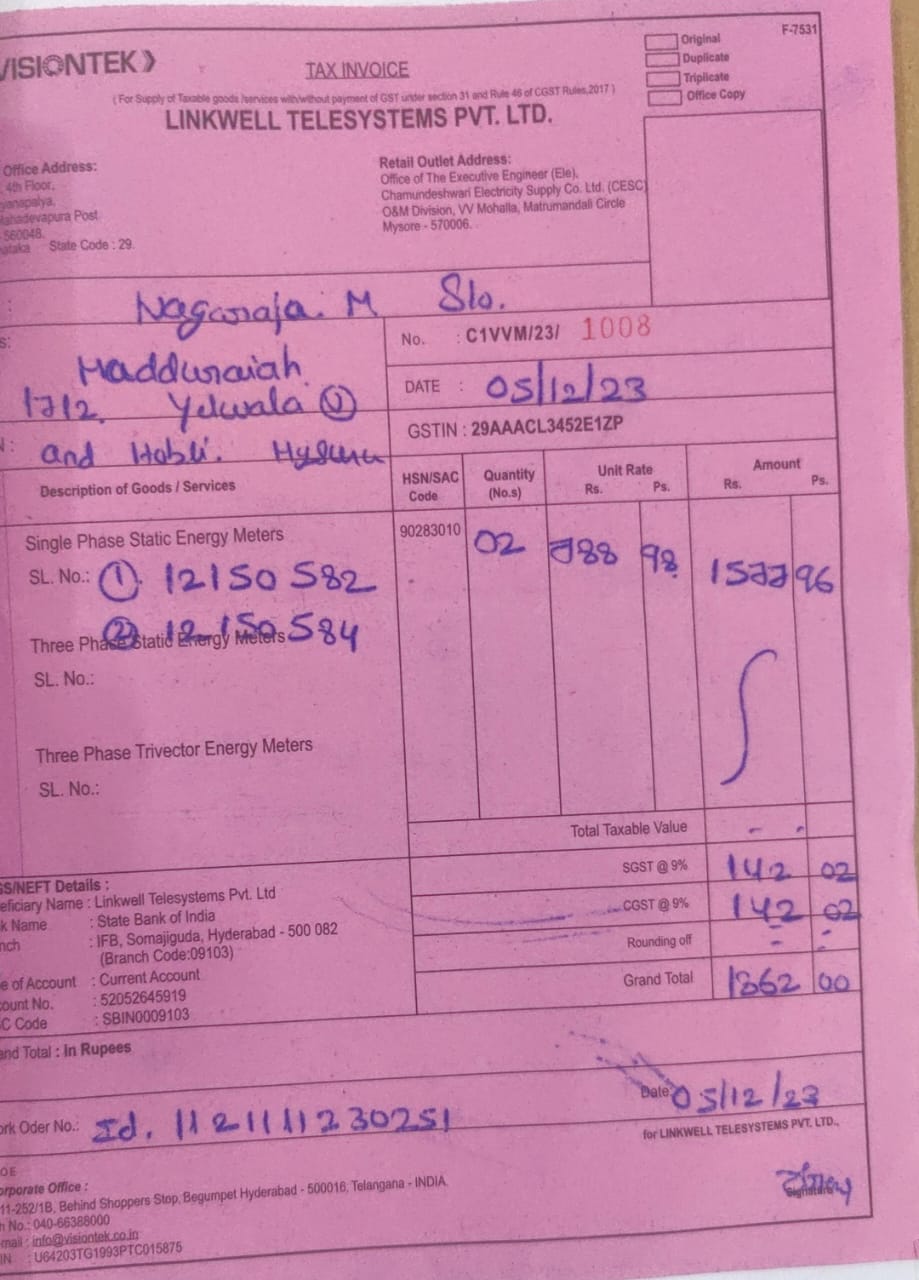 VISIONTEK
F-7531
TAX INVOICE
Original
Duplicate
Triplicate
Office Copy
( For Supply of Taxable goods /services with/without payment of GST under section 31 and Rule 46 of CGST Rules,2017 )
LINKWELL TELESYSTEMS PVT. LTD.
Office Address:
4th Floor,
Mahadevapura Post
560048.
State Code : 29.
Retail Outlet Address:
Office of The Executive Engineer (Ele),
Chamundeshwari Electricity Supply Co. Ltd. (CESC)
O&M Division, VV Mohalla, Matrumandali Circle
Mysore - 570006.
Nagaraja. M S/o.
Madduraiah
1712 Yelwala (V)
and Hobli.
No. : C1VVM/23/ 1008
DATE : 05/12/23
GSTIN : 29AAACL3452E1ZP
Description of Goods / Services HSN/SAC Code Quantity (No.s) Unit Rate Rs. Ps. Amount Rs. Ps.
Single Phase Static Energy Meters 90283010 02 788 98 1577 96
SL. No.: (1) 12150582
(2) 12150584
Three Phase Static Energy Meters
SL. No.:
Three Phase Trivector Energy Meters
SL. No.:
Total Taxable Value - -
SGST @ 9% 142 02
CGST @ 9% 142 02
Rounding off - -
Grand Total 1862 00
GS/NEFT Details :
eficiary Name : Linkwell Telesystems Pvt. Ltd
k Name : State Bank of India
nch : IFB, Somajiguda, Hyderabad - 500 082
(Branch Code:09103)
e of Account : Current Account
ount No. : 52052645919
C Code : SBIN0009103
and Total : In Rupees
Date 05/12/23
ork Oder No.: Id. 112111112 30251
for LINKWELL TELESYSTEMS PVT. LTD.,
Signature
OE
orporate Office :
11-252/1B, Behind Shoppers Stop, Begumpet Hyderabad - 500016, Telangana - INDIA.
h No.: 040-66388000
mail : info@visiontek.co.in
IN : U64203TG1993PTC015875